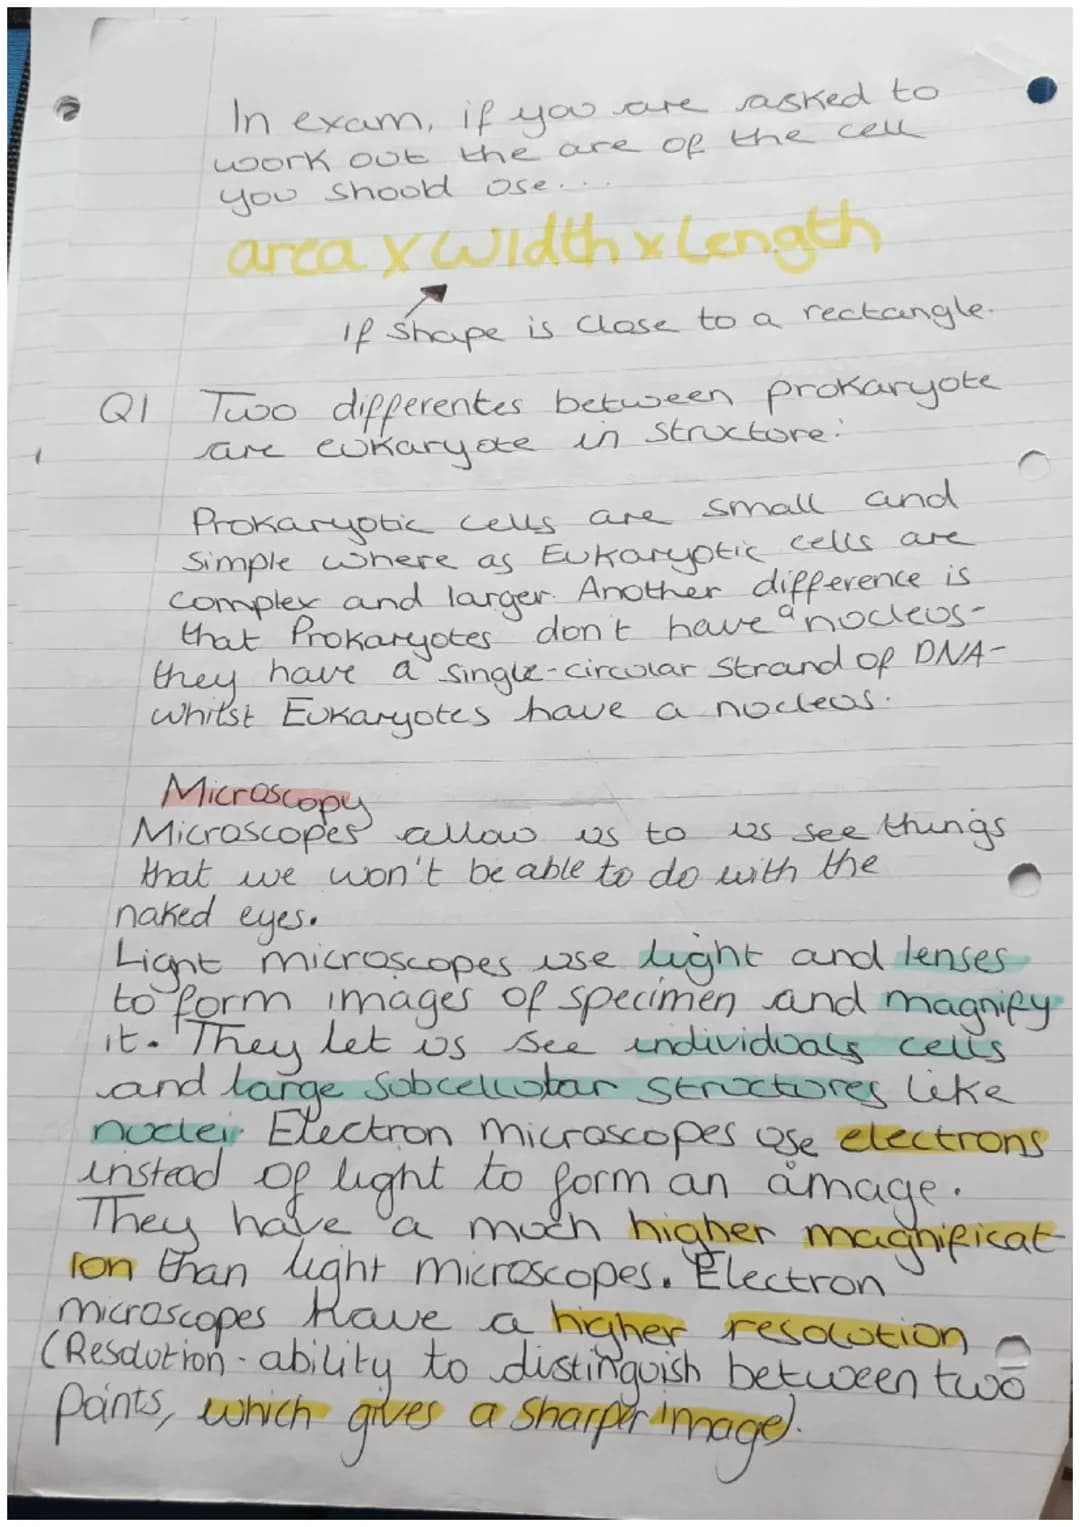 In exam, if you are asked to
work out the are of the cell
you should use...
area x width x length
If shape is close to a rectangle.
Q1 Two differentes between prokaryote
are eukaryote in structure:
Prokaryotic cells are small and
simple where as Eukaryotic cells are
complex and larger. Another difference is
that Prokaryotes don't have a nucleus-
they have a single-circular strand of DNA-
whilst Eukaryotes have a nucleus.
Microscopy
Microscopes allow us to us see things
that we won't be able to do with the
naked eyes.
Light microscopes use light and lenses
to form images of specimen and magnify
it. They let us see individuals cells
and large subcellular structures like
nuclei. Electron microscopes use electrons
instead of light to form an image.
They have a much higher magnificat
ion than light microscopes. Electron
microscopes have a higher resolution
(Resolution - ability to distinguish between two
points, which gives a sharper image).